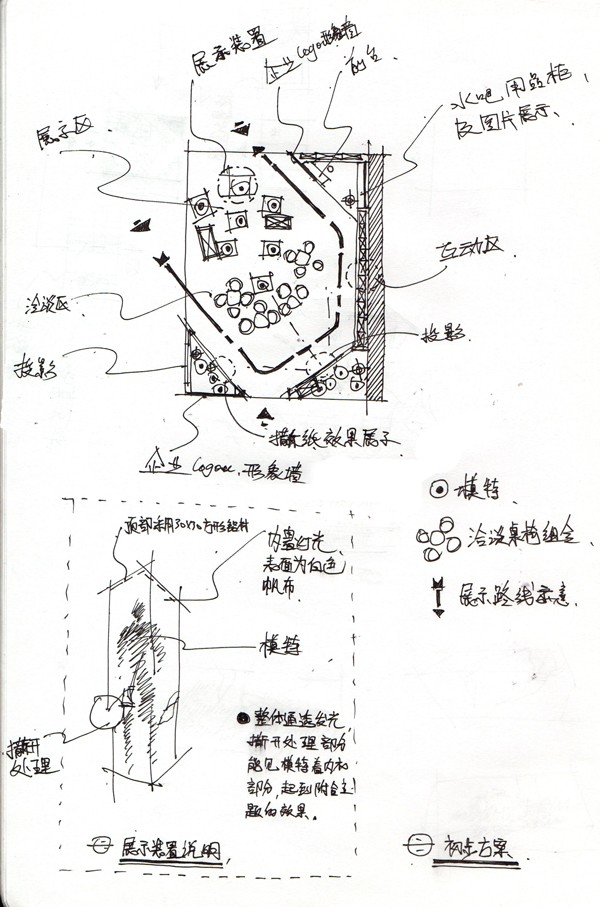 展示装置
企业logo形象墙
前台
水吧用壁柜
及图片展示、
展示区
互动区
洽谈区
投影
投影
撕纸效果展示
企业Logo 形象墙
模特
洽谈桌椅组合
展示路线示意
内置灯光、
表面为白色
帆布
模特
撕开
处理
●整体通透发光,
撕开处理部分
能见模特着内衣
部分,起到附合主
题的效果。
展示装置说明
初步方案